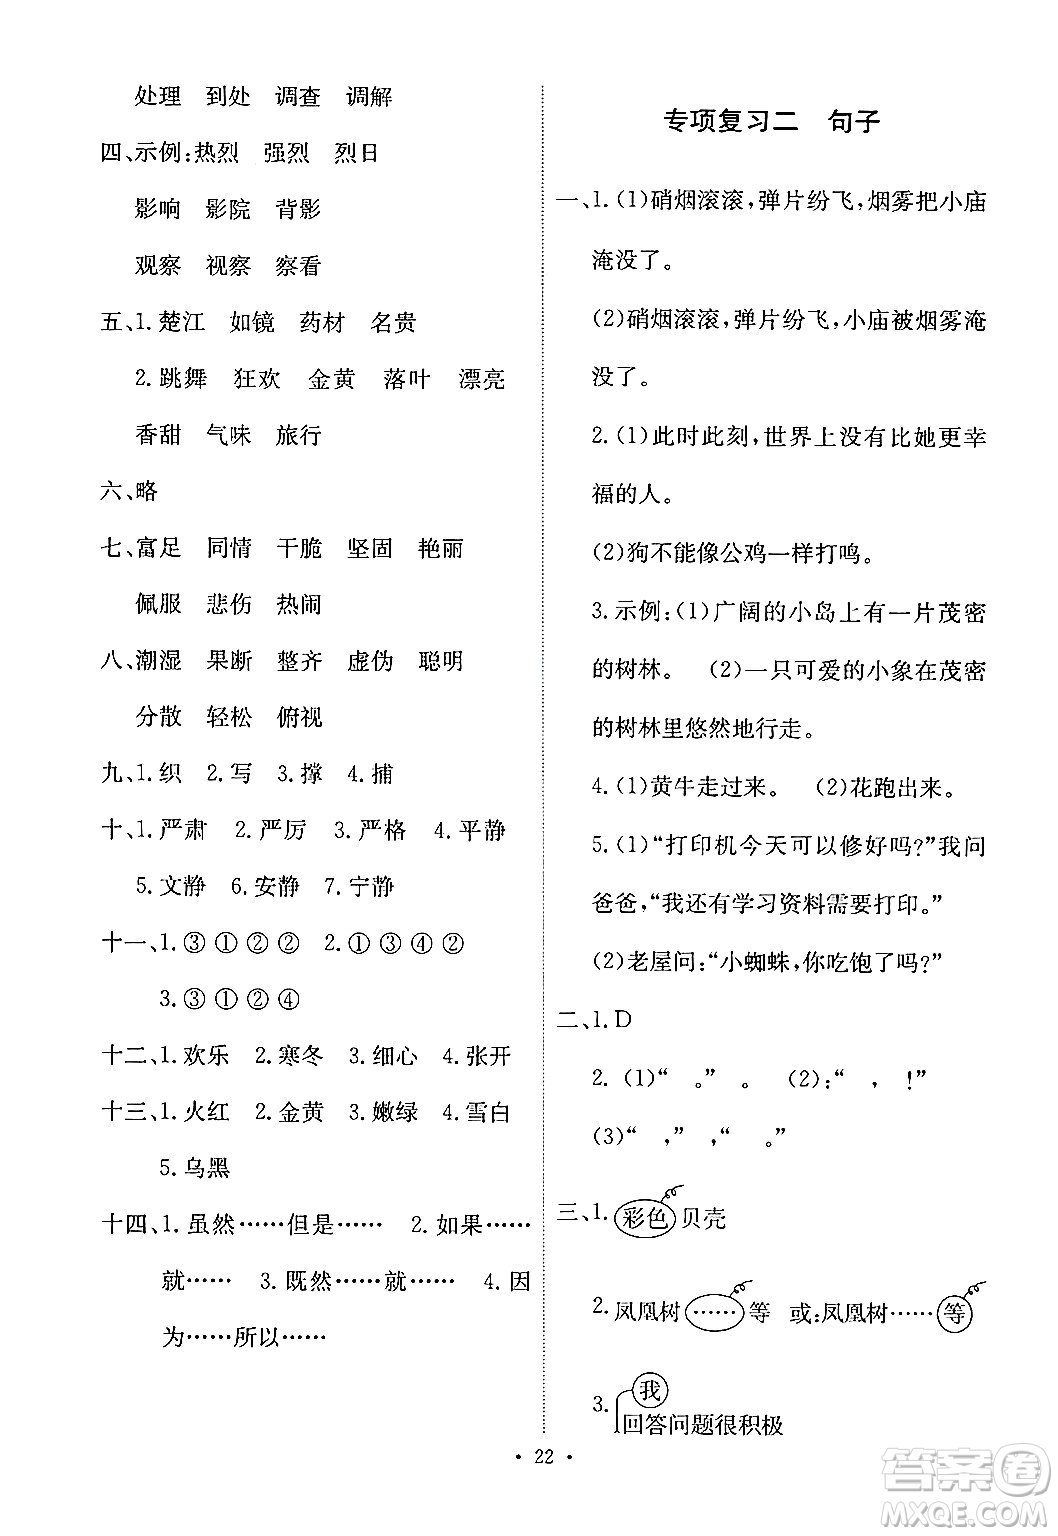 处理　到处　调查　调解
四、示例:热烈　强烈　烈日
影响　影院　背影
观察　视察　察看
五、1.楚江　如镜　药材　名贵
2.跳舞　狂欢　金黄　落叶　漂亮
香甜　气味　旅行
六、略
七、富足　同情　干脆　坚固　艳丽
佩服　悲伤　热闹
八、潮湿　果断　整齐　虚伪　聪明
分散　轻松　俯视
九、1.织　2.写　3.撑　4.捕
十、1.严肃　2.严厉　3.严格　4.平静
5.文静　6.安静　7.宁静
十一、1.③①②②　2.①③④②
3.③①②④
十二、1.欢乐　2.寒冬　3.细心　4.张开
十三、1.火红　2.金黄　3.嫩绿　4.雪白
5.乌黑
十四、1.虽然……但是……　2.如果……
就……　3.既然……就……　4.因
为……所以……
专项复习二　句子
一、1.(1)硝烟滚滚,弹片纷飞,烟雾把小庙
淹没了。
(2)硝烟滚滚,弹片纷飞,小庙被烟雾淹
没了。
2.(1)此时此刻,世界上没有比她更幸
福的人。
(2)狗不能像公鸡一样打鸣。
3.示例:(1)广阔的小岛上有一片茂密
的树林。　(2)一只可爱的小象在茂密
的树林里悠然地行走。
4.(1)黄牛走过来。　(2)花跑出来。
5.(1)“打印机今天可以修好吗?”我问
爸爸,“我还有学习资料需要打印。”
(2)老屋问:“小蜘蛛,你吃饱了吗?”
二、1.D
2.(1)“　。”　。　(2):“　,　!”
(3)“　,”　,“　。”
三、1.彩色贝壳
2.凤凰树……等　或:凤凰树……等
3.我
回答问题很积极
· 22 ·
答案圈
MXQE.COM